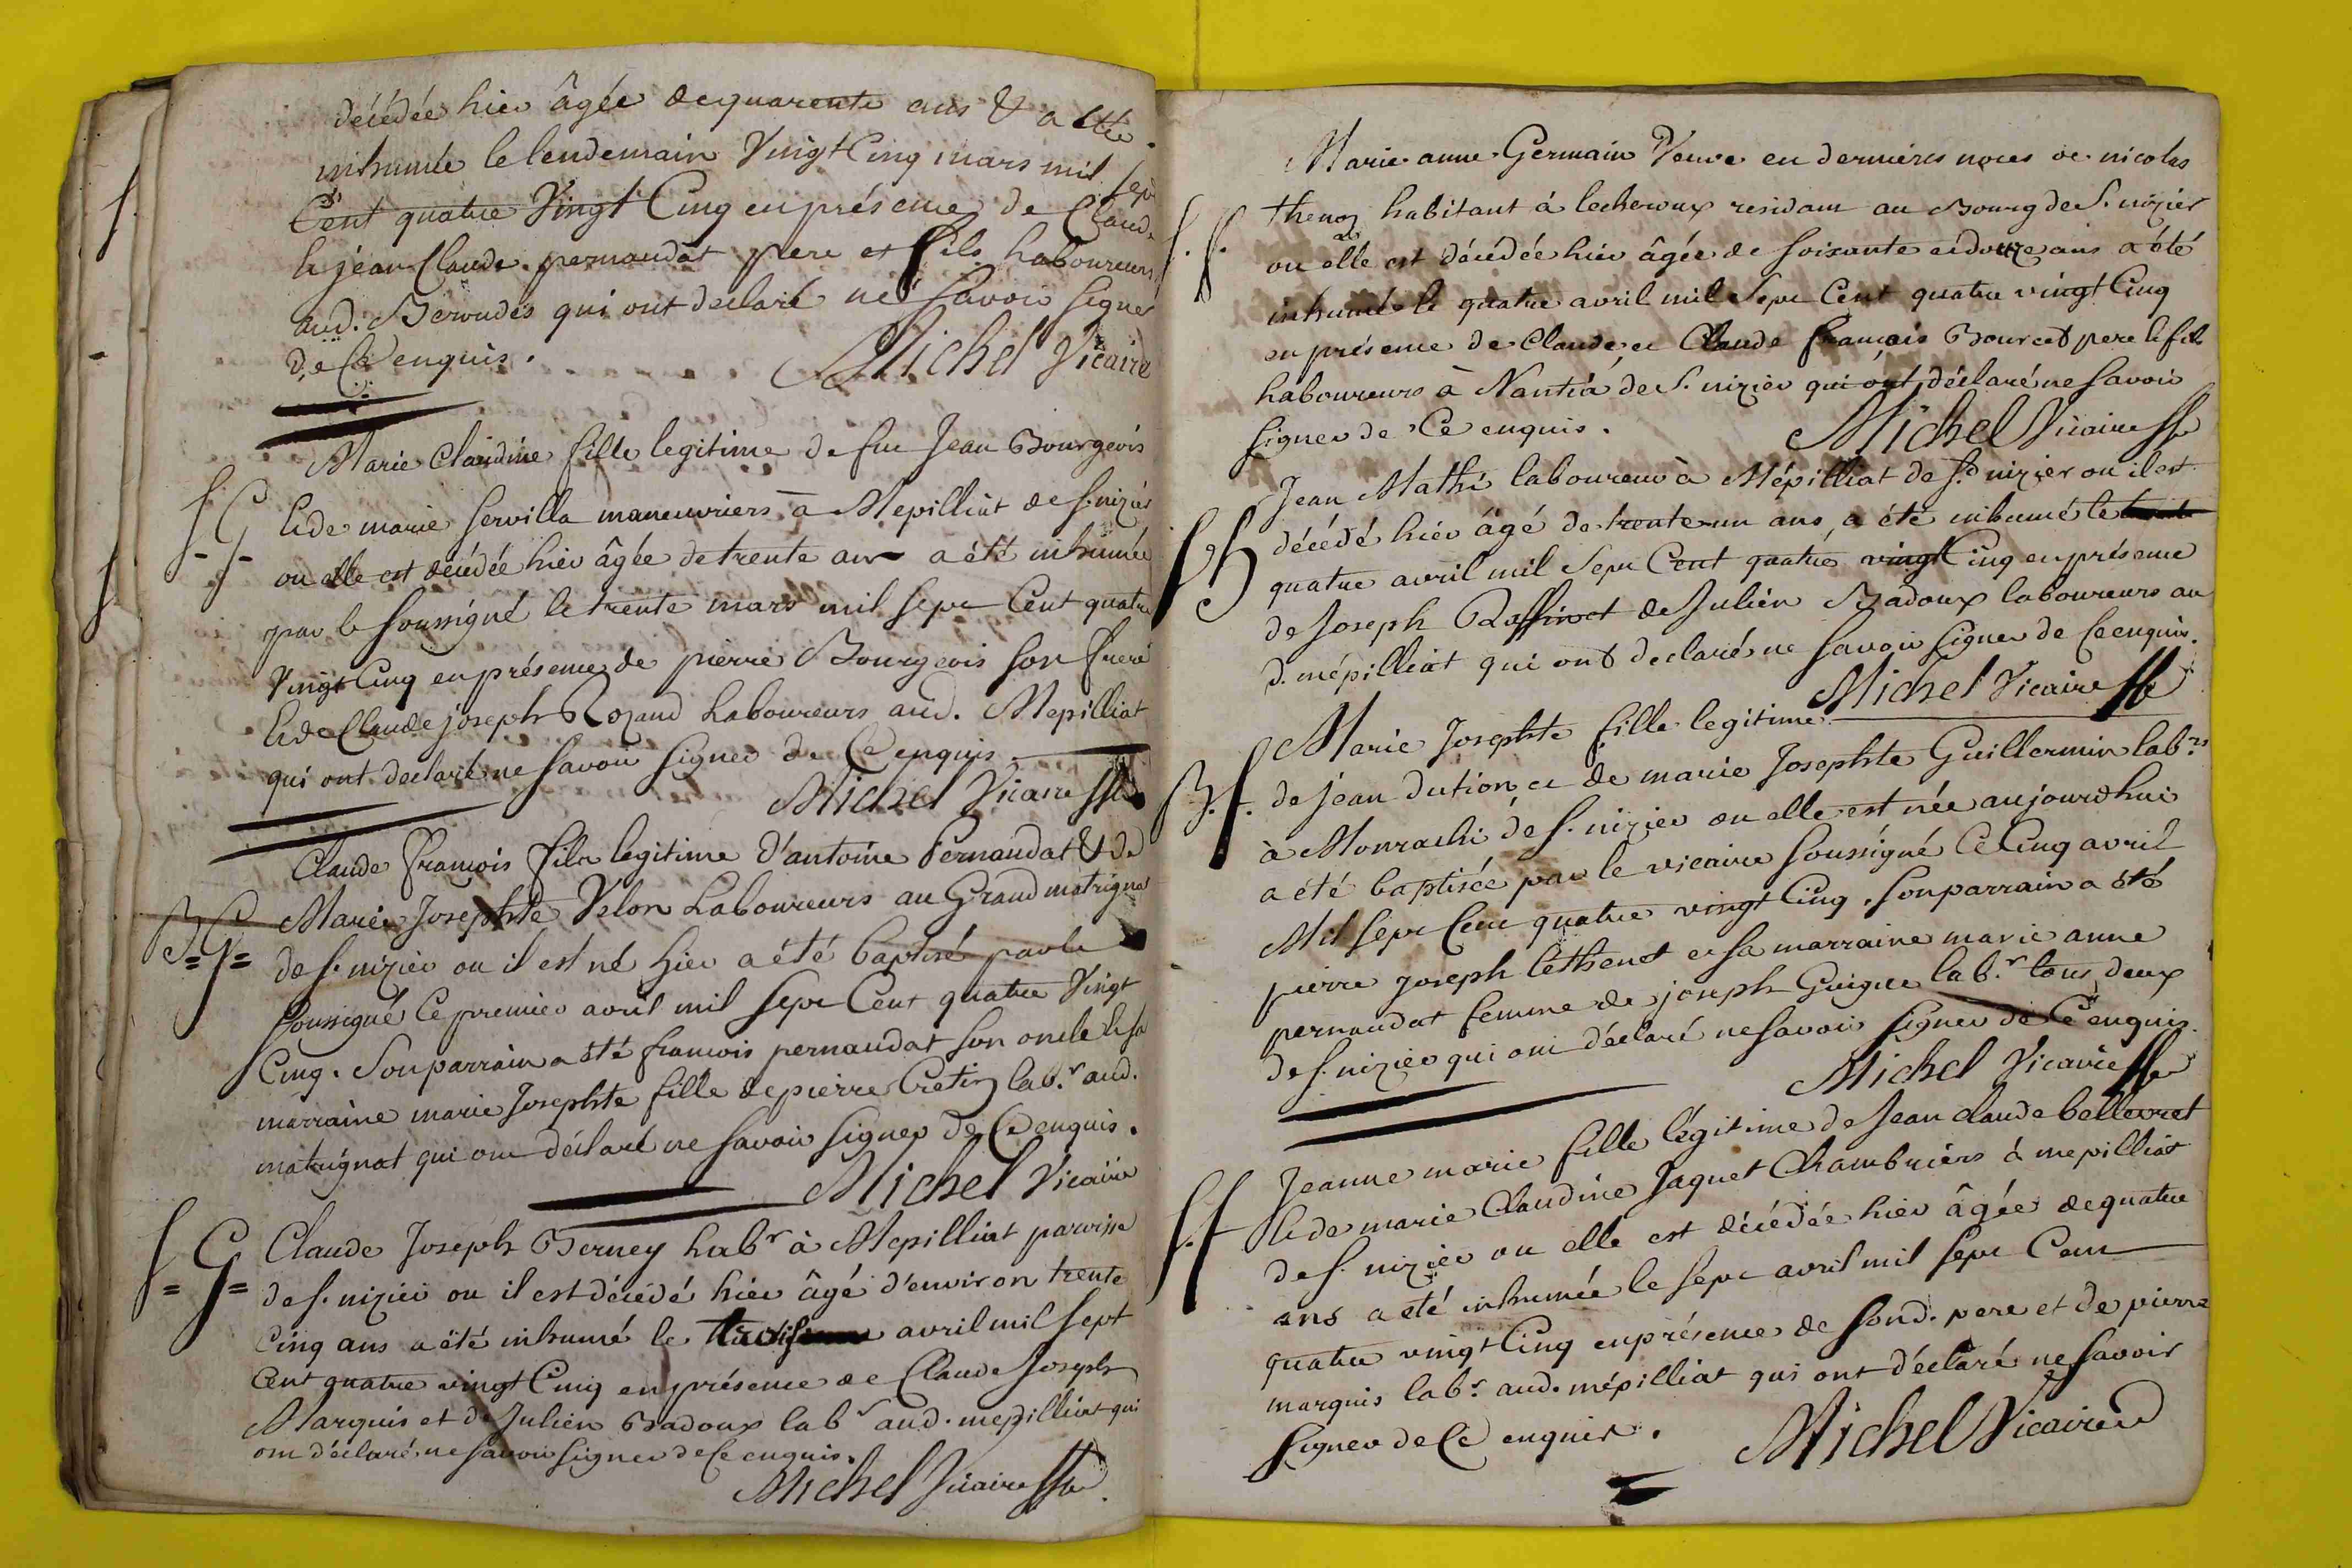 décédée hier âgée de quarente ans & a etté
inhumée le lendemain Vingt Cinq mars mil sept
Cent quatre Vingt Cinq en présence de Claude
& jean Claude pernaudat pere et fils Laboureurs
aud. Beroudes qui ont declaré ne savoir signer
de Ce enquis.
Michel Vicaire
Marie Claudine fille legitime de feu Jean Bourgeois
S. G
& de marie servilla maneuvriers à Mepilliat de S. nizier
ou elle est décédée hier âgée de trente ans a été inhumée
par le soussigné le trente mars mil sept Cent quatre
Vingt Cinq en présence de pierre Bourgeois son frere
& de Claude joseph Rozand Laboureurs aud. Mepilliat
qui ont declaré ne savoir signer de Ce enquis
Michel Vicaire
Claude François fils legitime d'antoine Pernaudat & de
B = G =
Marie Josephte Velon Laboureurs au Grand matrignat
de S. nizier ou il est né hier a été baptisé par le
soussigné Ce premier avril mil sept Cent quatre Vingt
Cinq. Son parrain a été francois pernaudat son oncle & sa
marraine marie Josephte fille de pierre Cretin lab.r aud.
matrignat qui ont déclaré ne savoir signer de Ce enquis.
Michel Vicaire
S = G =
Claude Joseph Berney Lab.r à Mepilliat parroisse
de S. nizier ou il est décédé hier âgé d'environ trente
Cinq ans a été inhumé le avril mil sept
Cent quatre vingt Cinq en présence de Claude Joseph
Marquis et de Julien Badoux lab.r aud. mepilliat qui
ont déclaré ne savoir signer de Ce enquis.
Michel Vicaire
Marie anne Germain Veuve en dernieres noces de nicolas
thenoz habitant à lecheroux residant au Bourg de S. nizier
S. f.
ou elle est décédée hier âgée de soixante et douze ans a été
inhumé le quatre avril mil sept Cent quatre vingt Cinq
en présence de Claude et Claude francois Bourcet pere & fils
Laboureurs à Nantia de S. nizier qui ont déclaré ne savoir
signer de Ce enquis.
Michel Vicaire
Jean Mathi laboureur à Mépilliat de S. nizier ou il est
décédé hier âgé de trente un ans, a été inhumé le
quatre avril mil sept Cent quatre vingt Cinq en présence
de Joseph Raffinet de Julien Badoux laboureurs au
d. mépilliat qui ont declaré ne savoir signer de Ce enquis.
Michel Vicaire
Marie Josephte fille legitime
B. f.
de jean dution et de marie Josephte Guillermin lab.rs
à Monrachi de S. nizier ou elle est née aujourdhui
a été baptisée par le vicaire soussigné Ce Cinq avril
Mil sept Cent quatre vingt Cinq. son parrain a été
pierre joseph lethenet et sa marraine marie anne
pernaudat femme de joseph Guigue lab.r tous deux
de S. nizier qui ont déclaré ne savoir signer de Ce enquis.
Michel Vicaire
Jeanne marie fille légitime de Jean Claude bellevret
S. f
& de marie Claudine Jaquet Chambriers à mepilliat
de S. nizier ou elle est décédée hier âgée de quatre
ans a été inhumée le sept avril mil sept Cent
quatre vingt Cinq en présence de sond. pere et de pierre
marquis lab.r aud. mépilliat qui ont déclaré ne savoir
signer de Ce enquis.
Michel Vicaire